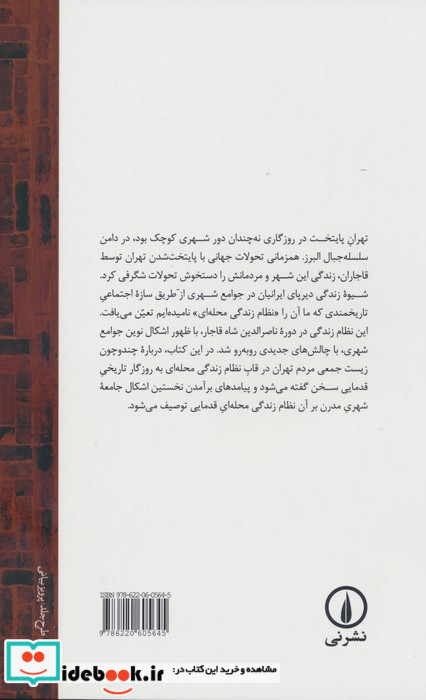 تهرانِ پایتخت در روزگاری نه‌چندان دور شهری کوچک بود، در دامن
سلسله‌جبال البرز. همزمانی تحولات جهانی با پایتخت‌شدن تهران توسط
قاجاران، زندگی این شهر و مردمانش را دستخوش تحولات شگرفی کرد.
شیوهٔ زندگی دیرپای ایرانیان در جوامع شهری از طریق سازهٔ اجتماعیِ
تاریخمندی که ما آن را «نظام زندگی محله‌ای» نامیده‌ایم تعیّن می‌یافت.
این نظام زندگی در دورهٔ ناصرالدین شاه قاجار، با ظهور اشکال نوین جوامع
شهری، با چالش‌های جدیدی روبه‌رو شد. در این کتاب، دربارهٔ چندوچون
زیست جمعی مردم تهران در قابِ نظام زندگی محله‌ای به روزگار تاریخیِ
قدمایی سخن گفته می‌شود و پیامدهای برآمدن نخستین اشکال جامعهٔ
شهریِ مدرن بر آن نظام زندگی محله‌ایِ قدمایی توصیف می‌شود.
طرح جلد: پرویز بیانی
ISBN 978-622-06-0564-5
9 786220 605645
نشرنی
idebook.ir
مشاهده و خرید این کتاب در: